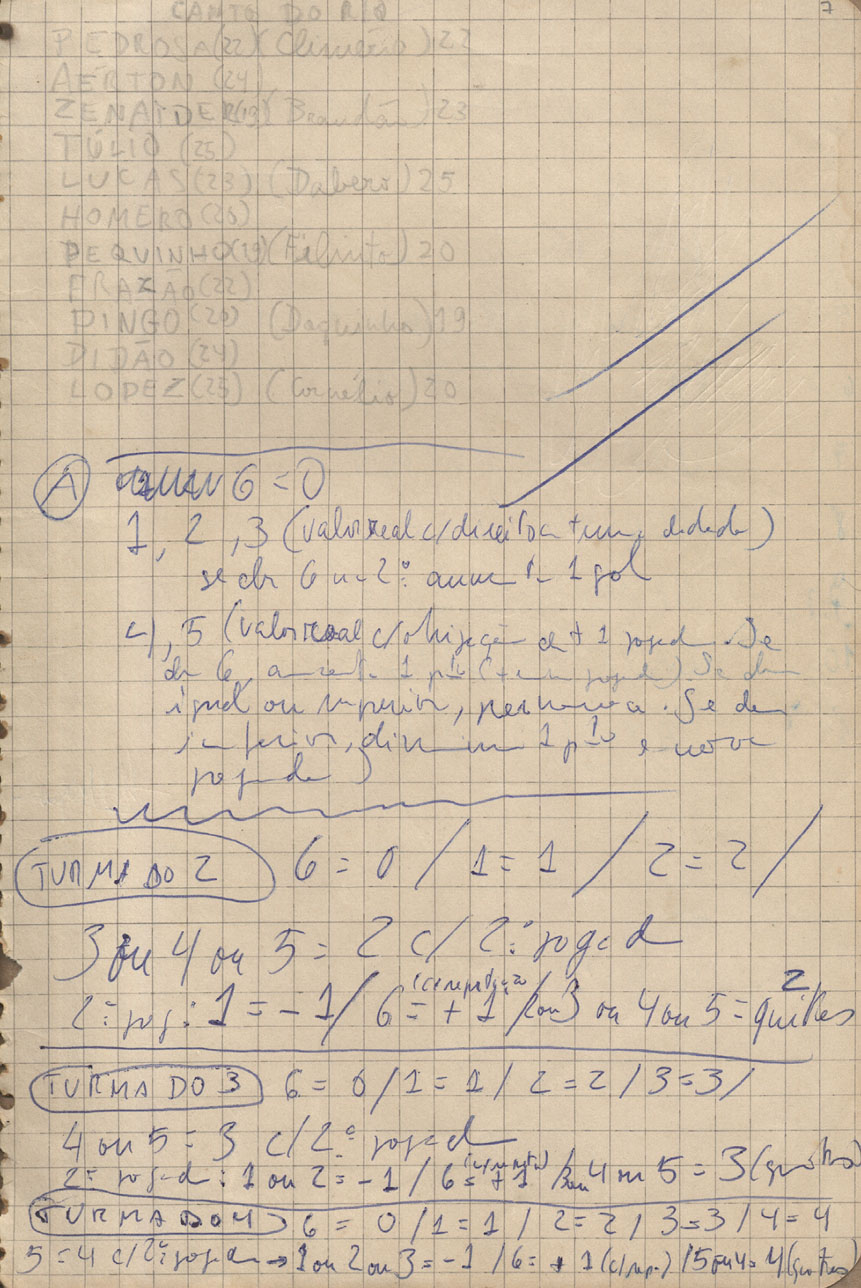 7
CANTO DO RIO
PEDROSA (22) (Climério) 22
AÉRTON (24)
ZENAIDER (19) (Brandão) 23
TÚLIO (25)
LUCAS (23) (Dabero) 25
HOMERO (26)
PEQUINHO (19) (Filinto) 20
FRAZÃO (22)
PINGO (20) (Daquinho) 19
DIDÃO (24)
LOPEZ (25) (Cornélio) 20
A 6 = 0
1, 2, 3 (valor real c/direito a + uma dedada)
se der 6 na 2ª aumenta 1 gol
4, 5 (valor real c/obrigação de + 1 jogada. Se
der 6, aumenta 1 pto (+ uma jogada). Se der
igual ou superior, permanece. Se der
inferior, diminui 1 pto e nova
jogada)
TURMA DO 2 6 = 0 / 1 = 1 / 2 = 2 /
3 ou 4 ou 5 = 2 c/ 2ª jogada
2ª jog: 1 = -1 / 6 = +1 (c/repetição) / 2 ou 3 ou 4 ou 5 = 2 quites
TURMA DO 3 6 = 0 / 1 = 1 / 2 = 2 / 3 = 3 /
4 ou 5 = 3 c/ 2ª jogada
2ª jogada: 1 ou 2 = -1 / 6 = +1 / 3 ou 4 ou 5 = 3 (quites)
TURMA DO 4 6 = 0 / 1 = 1 / 2 = 2 / 3 = 3 / 4 = 4
5 = 4 c/ 2ª jogada → 1 ou 2 ou 3 = -1 / 6 = +1 (c/rep.) / 5 ou 4 = 4 (quites)